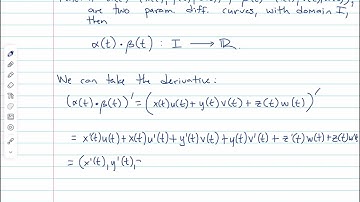 are two param. diff. curves, with domain I,
then
α(t)·β(t) : I → ℝ.
We can take the derivative:
(α(t)·β(t))' = (x(t)u(t) + y(t)v(t) + z(t)w(t))'
= x'(t)u(t) + x(t)u'(t) + y'(t)v(t) + y(t)v'(t) + z'(t)w(t) + z(t)w'(t)
= (x'(t), y'(t),